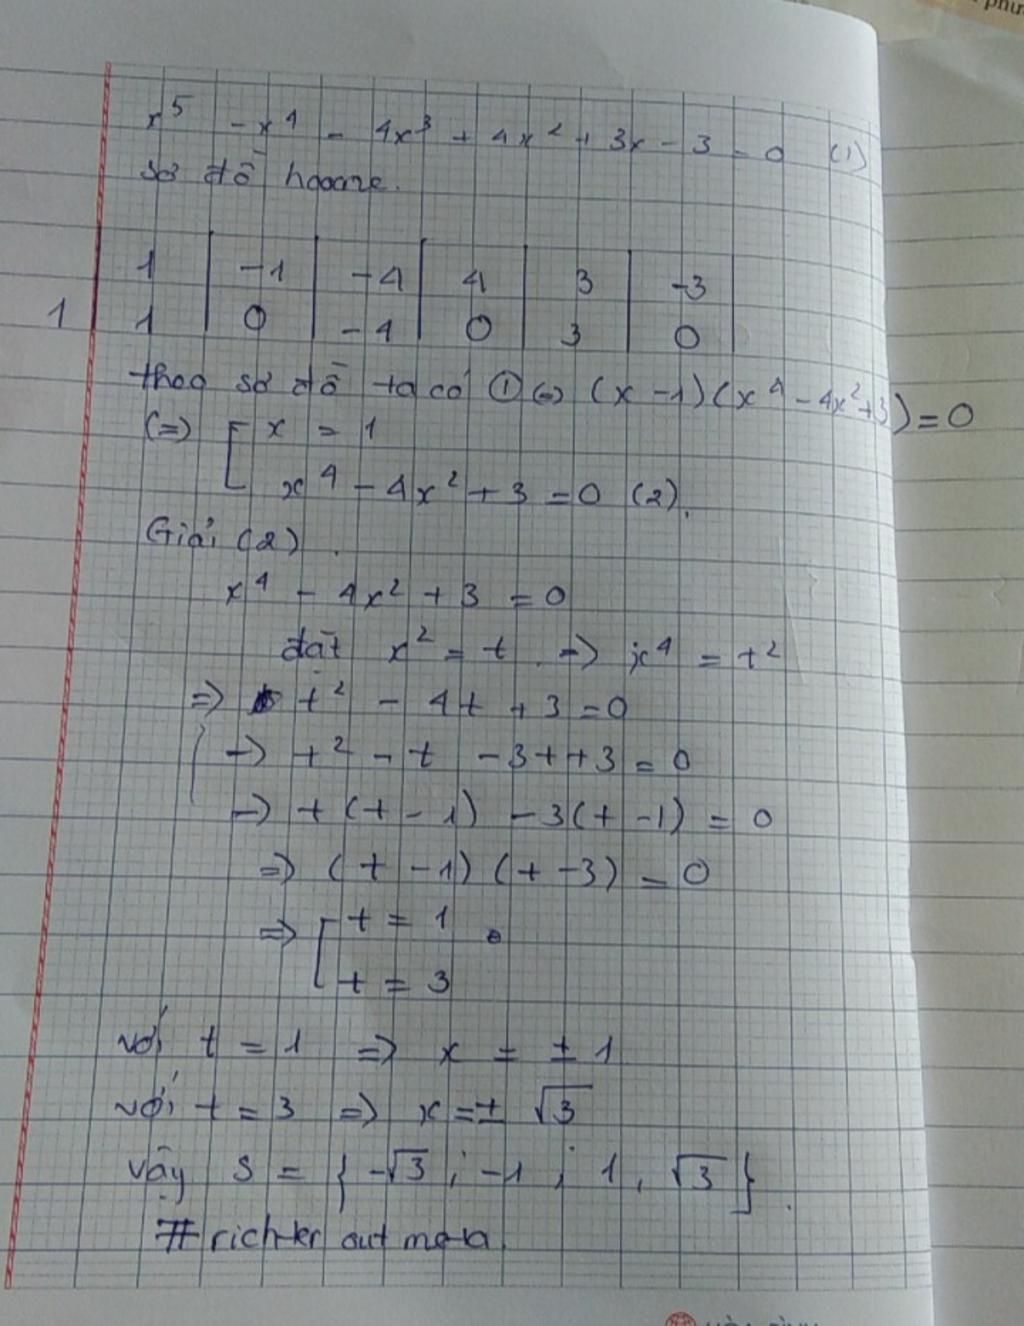 x⁵ - x⁴ - 4x³ + 4x² + 3x - 3 = 0 (1)
sơ đồ hooc ne.
1 | -1 | -4 | 4 | 3 | -3
1 1 | 0 | -4 | 0 | 3 | 0
theo sơ đồ ta có ① (=) (x - 1)(x⁴ - 4x² + 3) = 0
(=) [ x = 1
x⁴ - 4x² + 3 = 0 (2).
Giải (2).
x⁴ - 4x² + 3 = 0
đặt x² = t. -> x⁴ = t²
=> t² - 4t + 3 = 0
-> t² - t - 3t + 3 = 0
-> t(t - 1) - 3(t - 1) = 0
=> (t - 1)(t - 3) = 0
=> [ t = 1
t = 3
với t = 1 => x = ± 1
với t = 3 => x = ± √3
vậy S = { -√3 ; -1 ; 1 , √3 }.
# richter